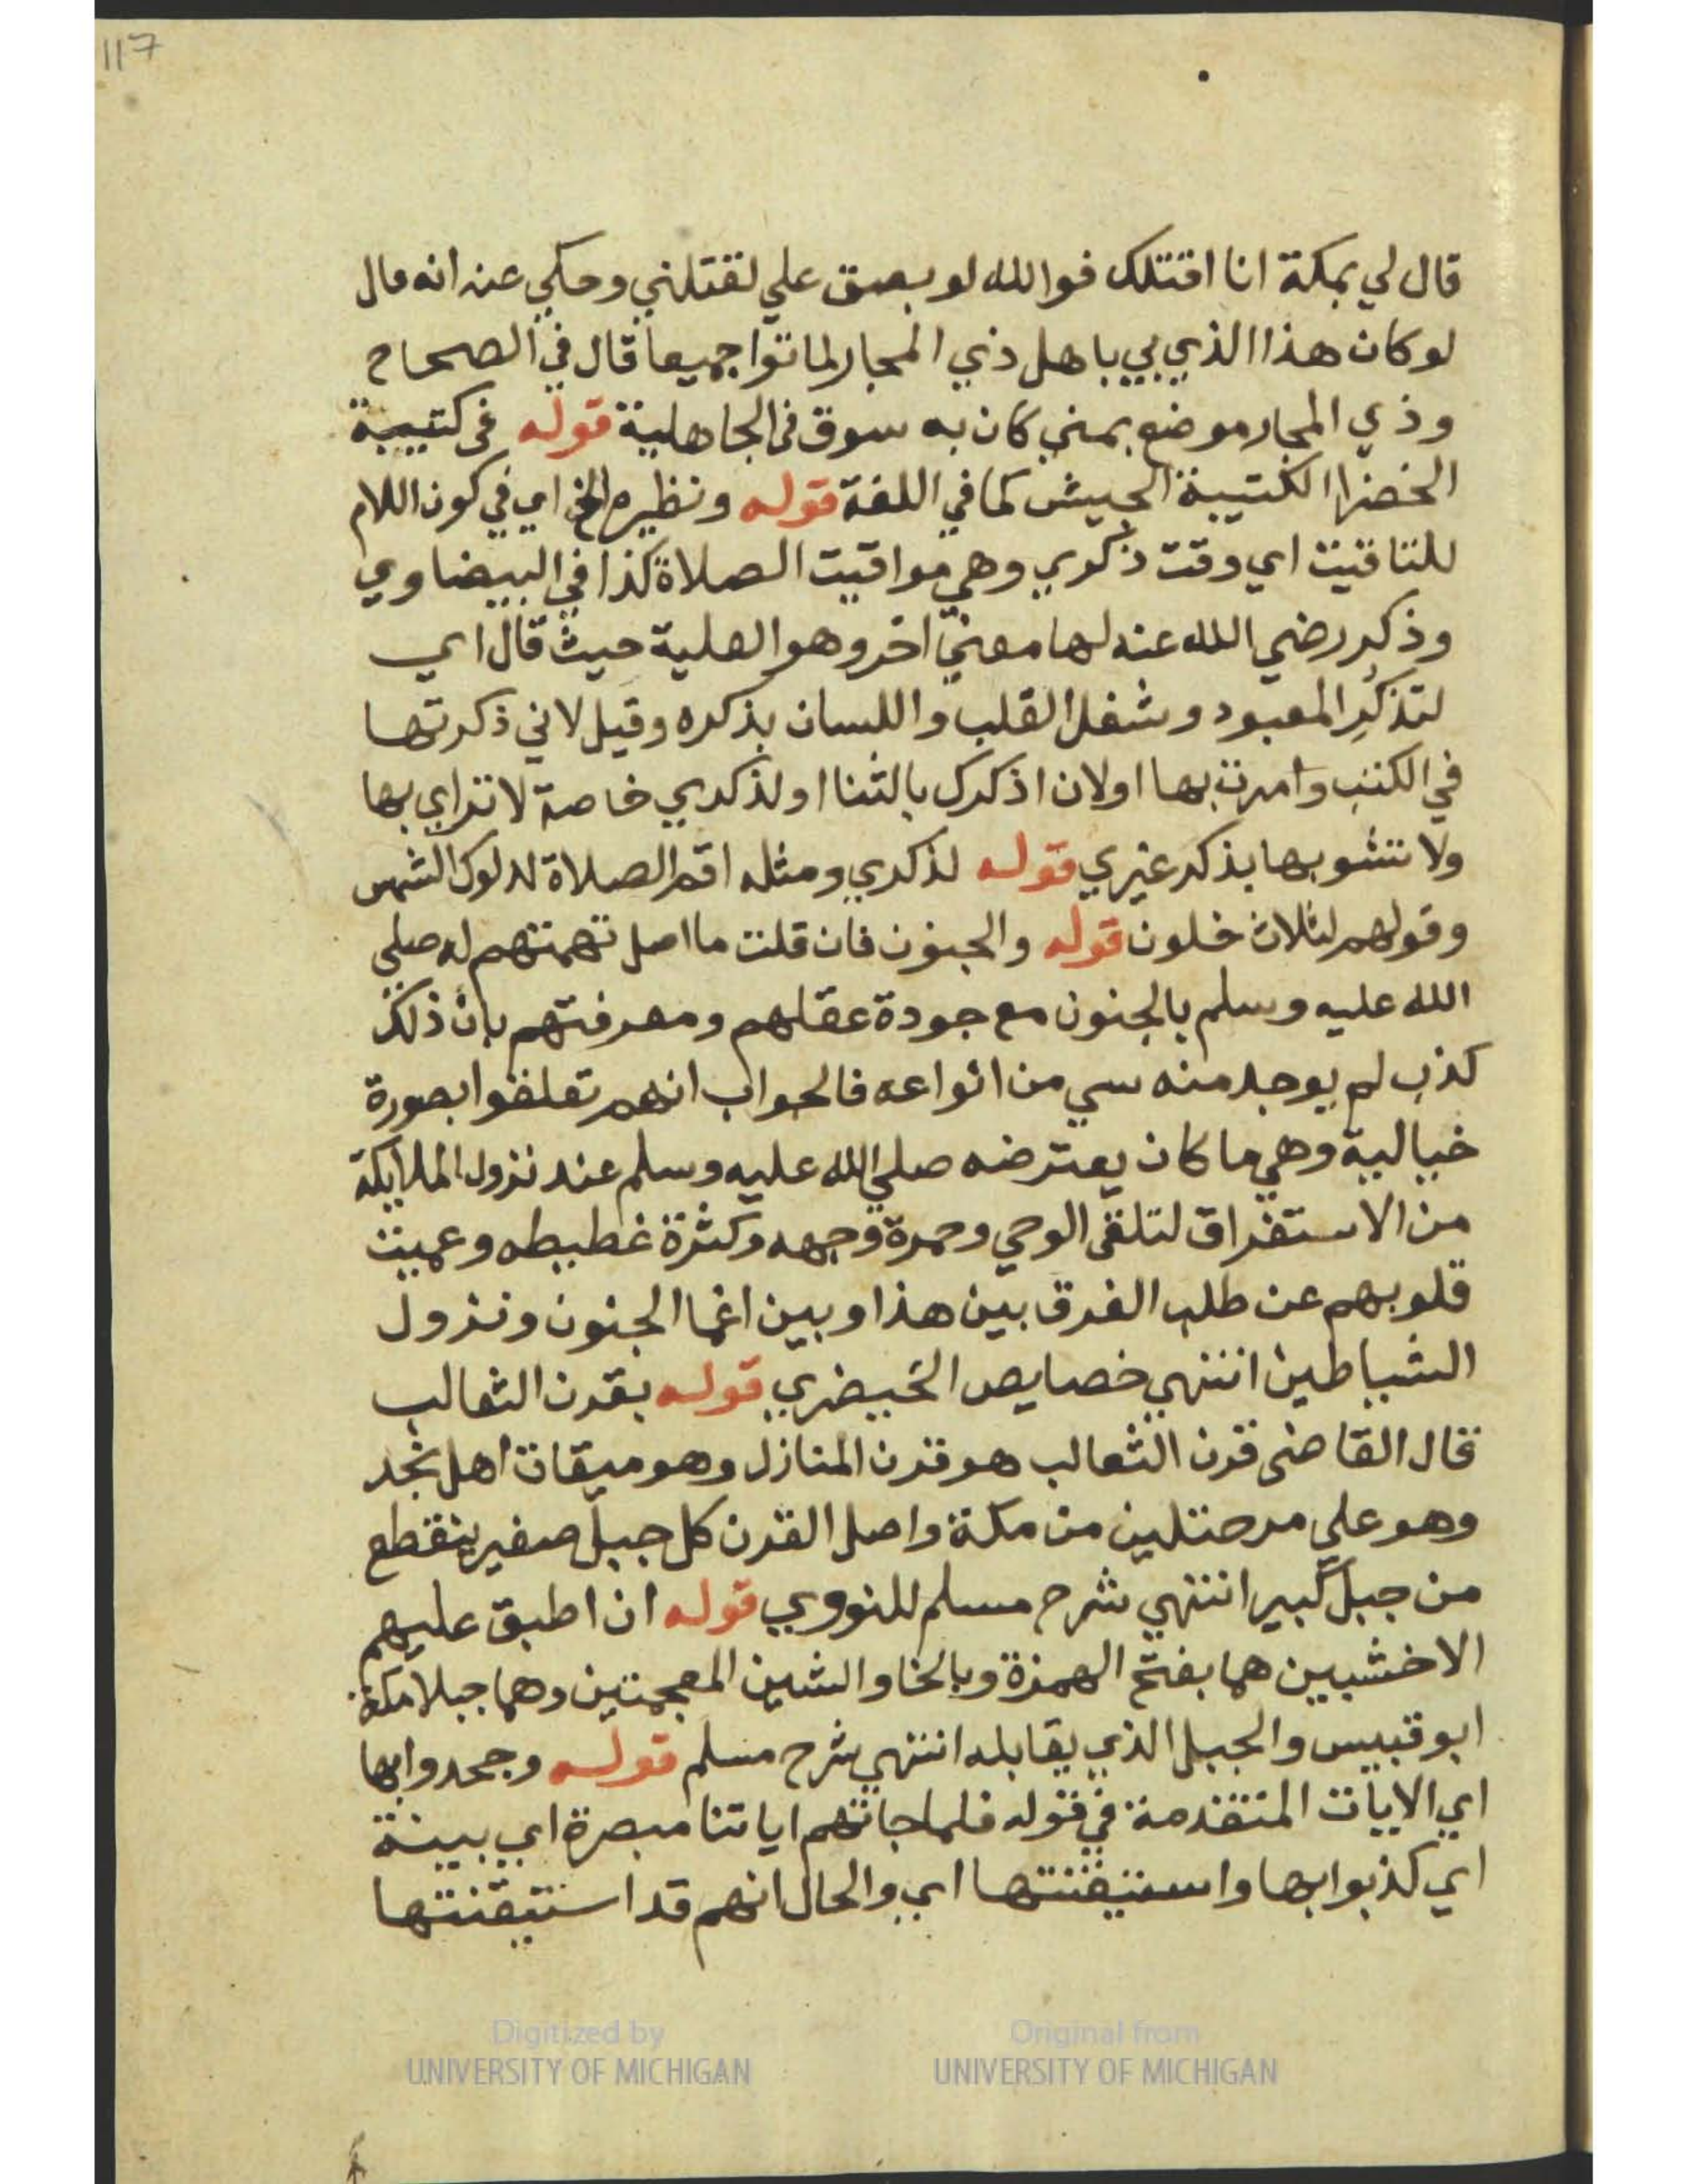 117
قال لي بمكة انا اقتلك فوالله لو بصق علي لقتلني وحكي عنه انه قال
لو كان هذا الذي بي باهل ذي المجار لماتوا جميعا قال في الصحاح
وذي المجار موضع بمني كان به سوق في الجاهلية قوله في كتيبة
الخضرا الكتيبة الجيش كما في اللغة قوله ونظيره الخ اي في كون اللام
للتاقيت اي وقت ذكري وهي مواقيت الصلاة كذا في البيضاوي
وذكر رضي الله عنه لها معني اخر وهو العلية حيث قال اي
لتذكر المعبود وشغل القلب واللسان بذكره وقيل لاني ذكرتها
في الكتب وامرت بها او لان اذكرك بالثنا او لذكري خاصة لا تراي بها
ولا تشوبها بذكر غيري قوله لذكري ومثله اقم الصلاة لدلوك الشمس
وقولهم لثلاث خلون قوله والجنون فان قلت ما اصل تهمتهم له صلي
الله عليه وسلم بالجنون مع جودة عقلهم ومعرفتهم بان ذلك
كذب لم يوجد منه سي من انواعه فالجواب انهم تعلقوا بصورة
خيالية وهي ما كان يعترضه صلي الله عليه وسلم عند نزول الملايكة
من الاستغراق لتلقي الوحي وحمرة وجهه وكثرة غطيطه وعميت
قلوبهم عن طلب الفرق بين هذا وبين اغما الجنون ونزول
الشياطين انتهي خصايص الخيضري قوله بقرن الثعالب
قال القاضي قرن الثعالب هو قرن المنازل وهو ميقات اهل نجد
وهو علي مرحتلين من مكة واصل القرن كل جبل صغير ينقطع
من جبل كبير انتهي شرح مسلم للنووي قوله ان اطبق عليهم
الاخشبين هما بفتح الهمزة وبالخا والشين المعجمتين وهما جبلا مكة
ابو قبيس والجبل الذي يقابله انتهي شرح مسلم قوله وجحدوا بها
اي الايات المتقدمة في قوله فلما جاتهم اياتنا مبصرة اي بينة
اي كذبوا بها واستيقنتها اي والحال انهم قد استيقنتها
Digitized by
UNIVERSITY OF MICHIGAN
Original from
UNIVERSITY OF MICHIGAN